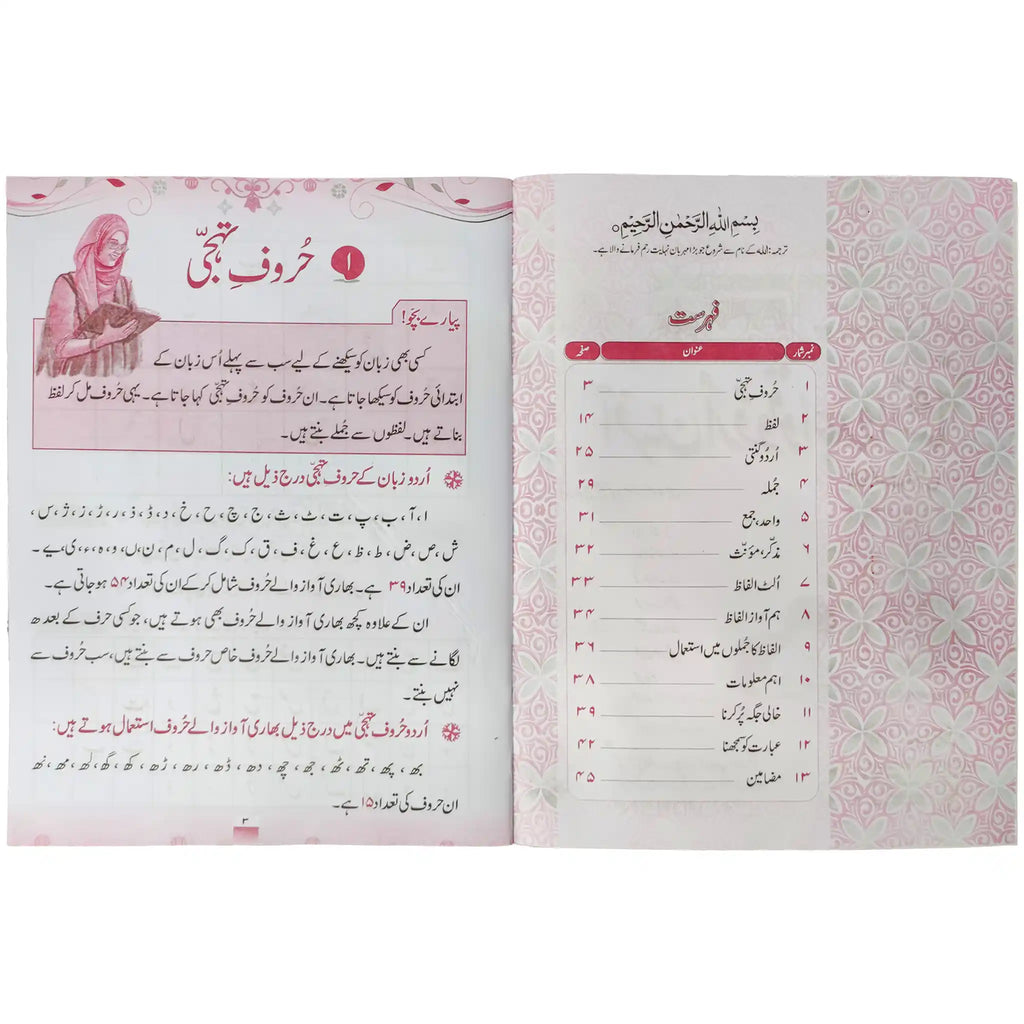 بِسْمِ اللہِ الرَّحْمٰنِ الرَّحِیْمِ ○
ترجمہ: اللہ کے نام سے شروع جو بڑا مہربان نہایت رحم فرمانے والا ہے۔
فہرست
نمبر شمار عنوان صفحہ
۱ حُروفِ تہجّی ۳
۲ لفظ ۱۴
۳ اُردُو گنتی ۲۵
۴ جُملہ ۲۹
۵ واحد، جمع ۳۱
۶ مذکّر، مؤنّث ۳۲
۷ اُلٹ الفاظ ۳۳
۸ ہم آواز الفاظ ۳۴
۹ الفاظ کا جُملوں میں استعمال ۳۶
۱۰ اہم معلومات ۳۸
۱۱ خالی جگہ پُر کرنا ۳۹
۱۲ عبارت کو سمجھنا ۴۲
۱۳ مضامین ۴۵
۱ حُروفِ تہجّی
پیارے بچو!
کسی بھی زبان کو سیکھنے کے لیے سب سے پہلے اُس زبان کے
ابتدائی حُروف کو سیکھا جاتا ہے۔ ان حُروف کو حُروفِ تہجّی کہا جاتا ہے۔ یہی حُروف مل کر لفظ
بناتے ہیں۔ لفظوں سے جُملے بنتے ہیں۔
اُردو زبان کے حروفِ تہجّی درج ذیل ہیں:
ا، آ، ب، پ، ت، ٹ، ث، ج، چ، ح، خ، د، ڈ، ذ، ر، ڑ، ز، ژ، س،
ش، ص، ض، ط، ظ، ع، غ، ف، ق، ک، گ، ل، م، ن، ں، و، ہ، ء، ی، ے۔
ان کی تعداد ۳۹ ہے۔ بھاری آواز والے حُروف شامل کر کے ان کی تعداد ۵۴ ہو جاتی ہے۔
ان کے علاوہ کچھ بھاری آواز والے حُروف بھی ہوتے ہیں، جو کسی حرف کے بعد ھ
لگانے سے بنتے ہیں۔ بھاری آواز والے حُروف خاص حروف سے بنتے ہیں، سب حُروف سے
نہیں بنتے۔
اُردو حُروفِ تہجّی میں درج ذیل بھاری آواز والے حُروف استعمال ہوتے ہیں:
بھ، پھ، تھ، ٹھ، جھ، چھ، دھ، ڈھ، رھ، ڑھ، کھ، گھ، لھ، مھ، نھ
ان حروف کی تعداد ۱۵ ہے۔
۳